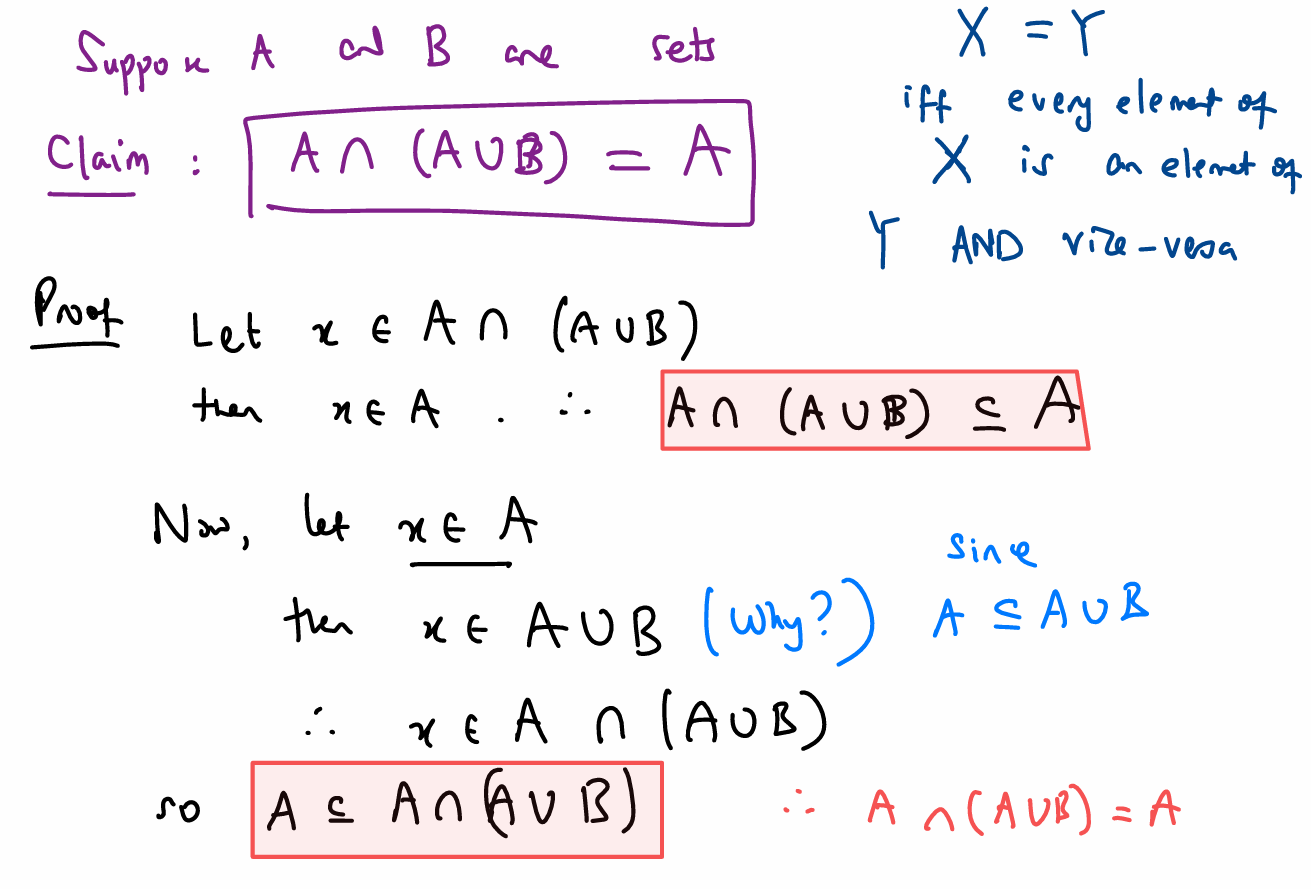 Suppose A and B are sets
Claim : A ∩ (A ∪ B) = A
X = Y
iff every element of
X is an element of
Y AND vice-versa
Proof Let x ∈ A ∩ (A ∪ B)
then x ∈ A . ∴ A ∩ (A ∪ B) ⊆ A
Now, let x ∈ A
then x ∈ A ∪ B (Why?) Since A ⊆ A ∪ B
∴ x ∈ A ∩ (A ∪ B)
so A ⊆ A ∩ (A ∪ B) ∴ A ∩ (A ∪ B) = A